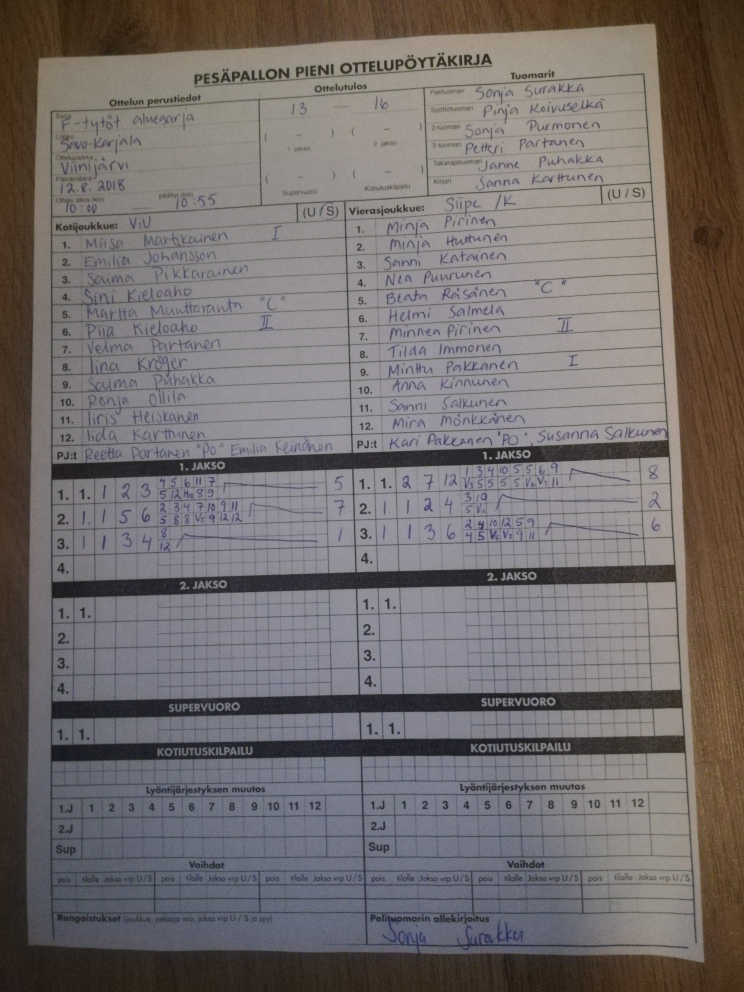 PESÄPALLON PIENI OTTELUPÖYTÄKIRJA
Ottelun perustiedot
Ottelutulos
Tuomarit
Sarja F-tytöt aluesarja
Savo-Karjala
Ottelupaikka Viinijärvi
Päivämäärä 12.8.2018
Ottelu alkoi (klo) 10:00 päättyi (klo) 10:55
13 — 16
( – ) ( – )
1. jakso 2. jakso
( – ) ( – )
Supervuoro Kotiutuskilpailu
Pelituomari Sonja Surakka
Syöttötuomari Pinja Koivuselkä
2-tuomari Sonja Purmonen
3-tuomari Petteri Partanen
Takarajatuomari Janne Puhakka
Kirjuri Sanna Karttunen
Kotijoukkue: ViU (U / S)
1. Miisa Martikainen I
2. Emilia Johansson
3. Sauma Pikkarainen
4. Sini Kieloaho
5. Martta Muuttoranta "C"
6. Piia Kieloaho II
7. Velma Partanen
8. Iina Kröger
9. Saima Puhakka
10. Ronja Ollila
11. Iiris Heiskanen
12. Iida Karttunen
PJ:t Reetta Partanen "PO" Emilia Keinänen
Vierasjoukkue: Siipe /K (U / S)
1. Minja Pirinen
2. Minja Huttunen
3. Sanni Katainen
4. Nea Puurunen
5. Beata Räsänen "C"
6. Helmi Salmela
7. Minnea Pirinen II
8. Tilda Immonen
9. Minttu Pakkanen I
10. Anna Kinnunen
11. Sanni Salkunen
12. Mira Mönkkänen
PJ:t Kari Pakkanen "PO", Susanna Salkunen
1. JAKSO
1. 1. 1 2 3 4 5 6 11 7 5
5 12 8 9
2. 1. 1 5 6 2 3 4 7 10 9 11 7
5 8 8 V 9 12 12
3. 1 1 3 4 8 1
12
4.
1. JAKSO
1. 1. 2 7 12 1 3 4 10 5 5 6 9 8
V 5 5 5 5 V V 11
2. 1 1 2 4 3 10 2
5 V
3. 1 1 3 6 2 4 10 12 5 9 6
4 5 V V 9 11
4.
2. JAKSO
1. 1.
2.
3.
4.
2. JAKSO
1. 1.
2.
3.
4.
SUPERVUORO
1. 1.
SUPERVUORO
1. 1.
KOTIUTUSKILPAILU
KOTIUTUSKILPAILU
Lyöntijärjestyksen muutos
1.J 1 2 3 4 5 6 7 8 9 10 11 12
2.J
Sup
Lyöntijärjestyksen muutos
1.J 1 2 3 4 5 6 7 8 9 10 11 12
2.J
Sup
Vaihdot
pois tilalle Jakso vrp U / S pois tilalle Jakso vrp U / S pois tilalle Jakso vrp U / S
Vaihdot
pois tilalle Jakso vrp U / S pois tilalle Jakso vrp U / S pois tilalle Jakso vrp U / S
Rangaistukset (joukkue, pelaaja nro, jakso vrp U / S ja syy)
Pelituomarin allekirjoitus
Sonja Surakka